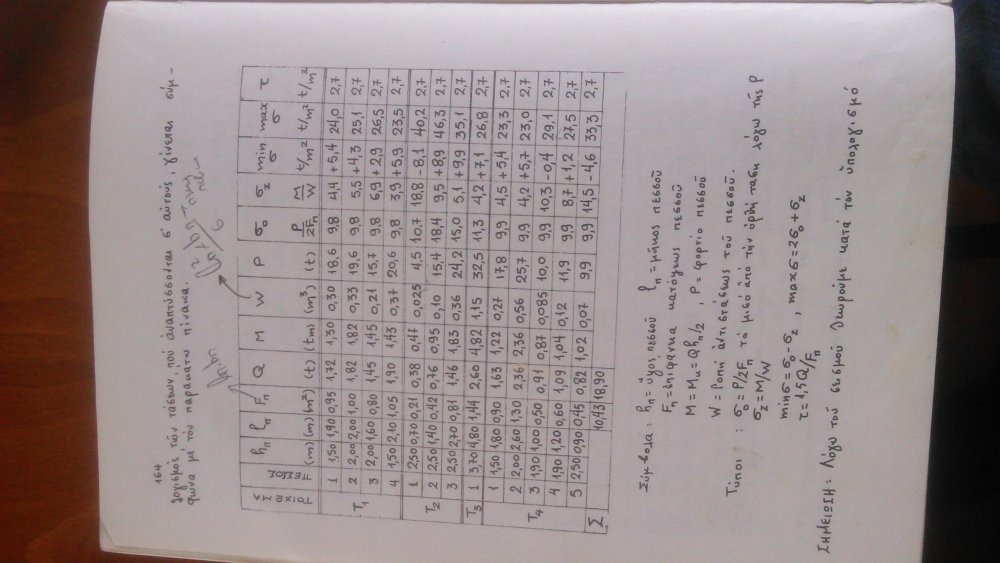 164
λογισμὸς τῶν τάσεων, ποὺ ἀναπτύσσονται σ' αὐτούς, γίνεται σύμ-
φωνα μὲ τὸν παρακάτω πίνακα.
ΤΟΙΧΩΜΑ ΠΕΣΣΟΣ hπ ℓπ Fπ Q M W P σ₀ σz min σ max σ τ
(m) (m) (m²) (t) (tm) (m³) (t) P/2Fπ M/W t/m² t/m² t/m²
T₁ 1 1,50 1,90 0,95 1,72 1,30 0,30 18,6 9,8 4,4 +5,4 24,0 2,7
2 2,00 2,00 1,00 1,82 1,82 0,33 19,6 9,8 5,5 +4,3 25,1 2,7
3 2,00 1,60 0,80 1,45 1,45 0,21 15,7 9,8 6,9 +2,9 26,5 2,7
4 1,50 2,10 1,05 1,90 1,43 0,37 20,6 9,8 3,9 +5,9 23,5 2,7
T₂ 1 2,50 0,70 0,21 0,38 0,47 0,025 4,5 10,7 18,8 -8,1 40,2 2,7
2 2,50 1,40 0,42 0,76 0,95 0,10 15,4 18,4 9,5 +8,9 46,3 2,7
3 2,50 2,70 0,81 1,46 1,83 0,36 24,2 15,0 5,1 +9,9 35,1 2,7
T₃ 1 3,70 4,80 1,44 2,60 4,82 1,15 32,5 11,3 4,2 +7,1 26,8 2,7
T₄ 1 1,50 1,80 0,90 1,63 1,22 0,27 17,8 9,9 4,5 +5,4 23,3 2,7
2 2,00 2,60 1,30 2,36 2,36 0,56 25,7 9,9 4,2 +5,7 23,0 2,7
3 1,90 1,00 0,50 0,91 0,87 0,085 10,0 9,9 10,3 -0,4 29,1 2,7
4 1,90 1,20 0,60 1,09 1,04 0,12 11,9 9,9 8,7 +1,2 27,5 2,7
5 2,50 0,90 0,45 0,82 1,02 0,07 9,9 9,9 14,5 -4,6 33,3 2,7
Σ 10,43 18,90
Σύμβολα : hπ = ὕψος πεσσοῦ ℓπ = μῆκος πεσσοῦ
Fπ = ἐπιφάνεια κατόψεως πεσσοῦ
M = Mu = Qhπ/2 , P = φορτίο πεσσοῦ
W = Ροπὴ ἀντιστάσεως τοῦ πεσσοῦ.
Τύποι : σ₀ = P/2Fπ τὸ μισὸ ἀπὸ τὴν ὀρθὴ τάση λόγω τῆς P
σz = M/W
minσ = σ₀ - σz , maxσ = 2σ₀ + σz
τ = 1,5Q/Fπ
ΣΗΜΕΙΩΣΗ : Λόγω τοῦ σεισμοῦ θεωροῦμε κατὰ τὸν ὑπολογισμό